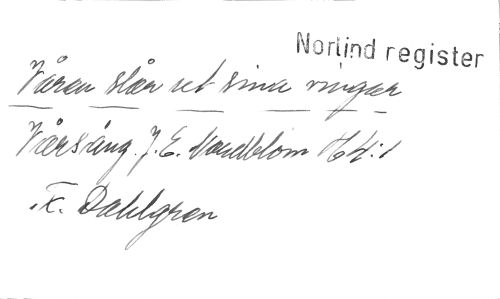 Norlind register
Våren slår ut sina vingar
Vårsång. J. E. Nordblom H 4:1
F. Dahlgren